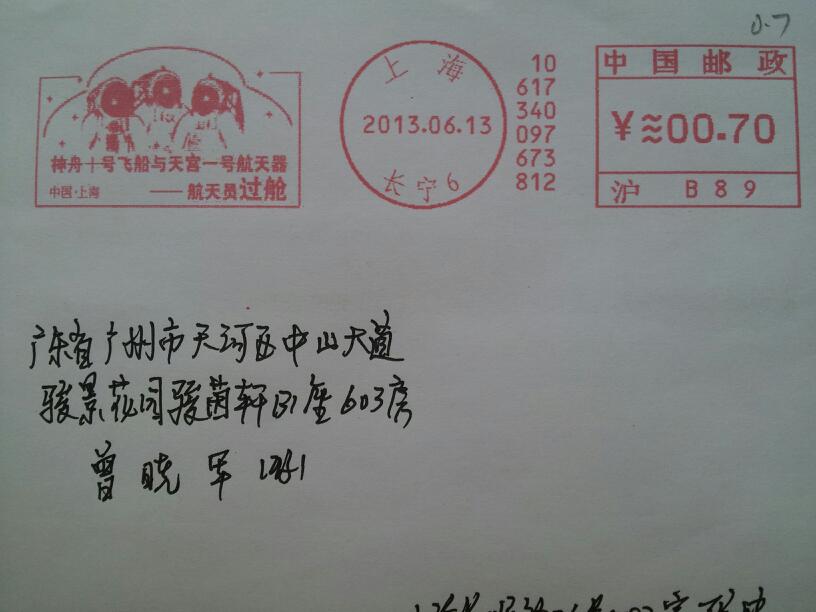 0.7
神舟十号飞船与天宫一号航天器
中国·上海 ——航天员过舱
上海
2013.06.13
长宁6
10
617
340
097
673
812
中国邮政
¥≈00.70
沪 B89
广东省广州市天河区中山大道
骏景花园骏茵轩B1座603房
曾晓军